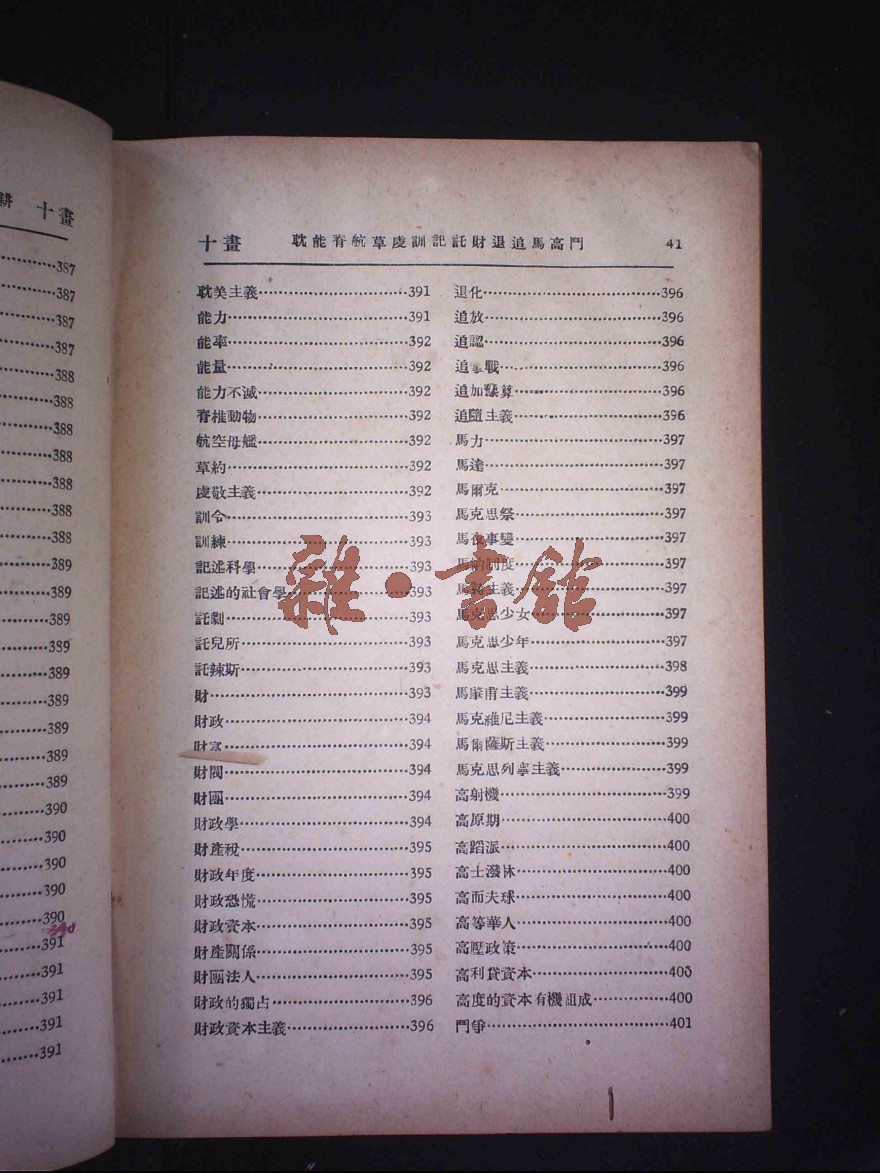 耕 十畫
387
387
387
387
388
388
388
388
388
388
388
389
389
389
389
389
389
389
389
389
390
390
390
390
390
390
391
391
391
391
391
十畫 耽能脊航草虔訓記託財退追馬高鬥 41
耽美主義 391
能力 391
能率 392
能量 392
能力不滅 392
脊椎動物 392
航空母艦 392
草約 392
虔敬主義 392
訓令 393
訓練 393
記述科學 393
記述的社會學 393
託劇 393
託兒所 393
託辣斯 393
財 393
財政 394
財富 394
財閥 394
財團 394
財政學 394
財產稅 395
財政年度 395
財政恐慌 395
財政資本 395
財產關係 395
財團法人 395
財政的獨占 396
財政資本主義 396
退化 396
追放 396
追認 396
追擊戰 396
追加預算 396
追隨主義 396
馬力 397
馬達 397
馬爾克 397
馬克思祭 397
馬夜事變 397
馬納制度 397
主義 397
馬克思少女 397
馬克思少年 397
馬克思主義 398
馬肇甫主義 399
馬克維尼主義 399
馬爾薩斯主義 399
馬克思列寧主義 399
高射機 399
高原期 400
高蹈派 400
高士潑林 400
高而夫球 400
高等華人 400
高壓政策 400
高利貸資本 400
高度的資本有機組成 400
鬥爭 401
雜·書館